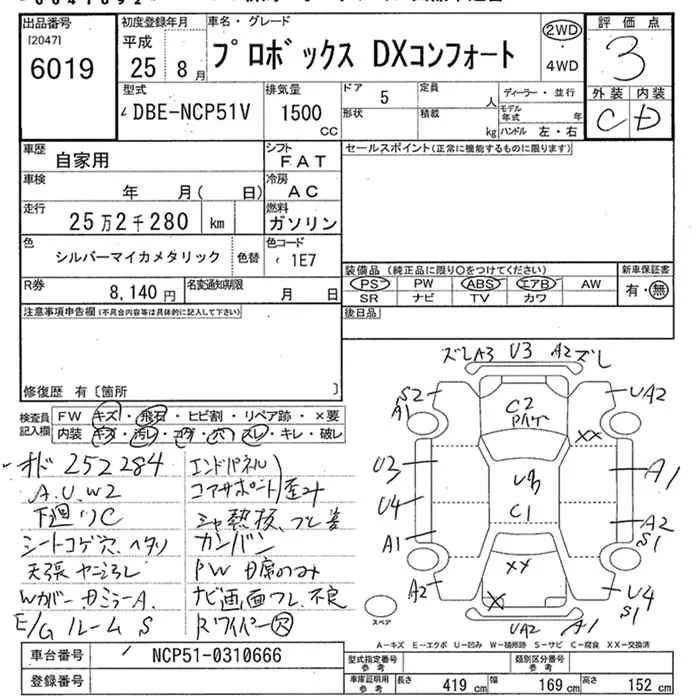 出品番号
[2047]
6019
初度登録年月
平成
25年8月
車名・グレード
プロボックス DXコンフォート
2WD
・
4WD
評価点
3
外装 内装
C D
型式
DBE-NCP51V
排気量
1500
CC
ドア 5
形状
定員 人
積載 kg
ディーラー・並行
モデル年式 年
ハンドル 左・右
車歴
自家用
シフト
FAT
車検
年 月( 日)
冷房
AC
走行
25万2千280 km
燃料
ガソリン
色
シルバーマイカメタリック
色替
色コード
1E7
R券
8,140円
名変通知期限
月 日
セールスポイント(正常に機能するものに限ります)
装備品(純正品に限り○をつけてください)
PS PW ABS エアB AW
SR ナビ TV カワ
新車保証書
有・無
後日品
注意事項申告欄(不具合内容等は具体的に記入して下さい)
修復歴 有〔箇所 〕
検査員記入欄
FW キズ・飛石・ヒビ割・リペア跡・×要
内装 キズ・汚レ・コゲ・穴・スレ・キレ・破レ
オド 252284
A.U.W2
下廻りC
シートコゲ穴、ヘタリ
天張ヤニヨゴレ
WカバーカミラーA.
E/Gルーム S
エンドパネル
コアサポート 歪み
シャ熱板、フレ 差
カンバン
PW 前席のみ
ナビ画面フレ、不良
Rワイパー欠
ズレA3 U3 A2ズレ
S2
A1
UA2
C2
XX
U3
U3
A1
U4
C1
A2
S1
A1
XX
A2
X
U4
S1
UA2
A1
スペア
A−キズ E−エクボ U−凹み W−補修跡 S−サビ C−腐食 XX−交換済
車台番号
NCP51-0310666
登録番号
型式指定番号
参考
類別区分番号
参考
車庫証明用
参考
長さ 419 cm 幅 169 cm 高さ 152 cm